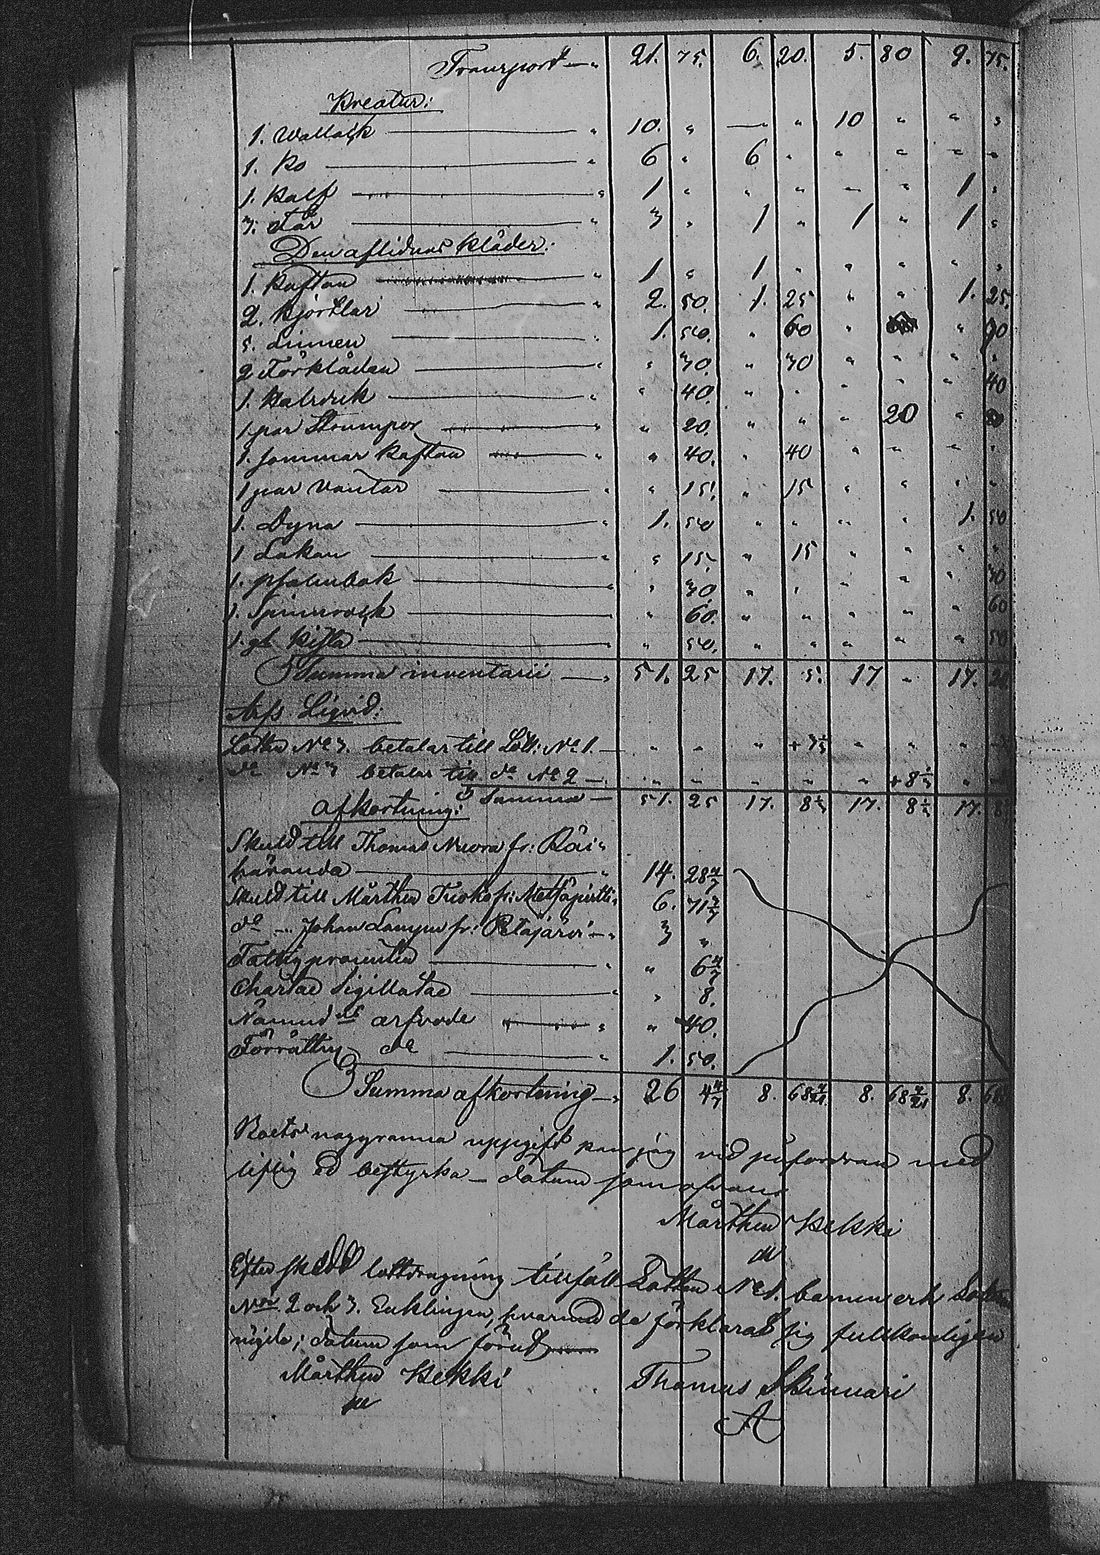 Transport 21. 75. 6. 20. 5. 80 9. 75.
Kreatur:
1. Wallack " 10. " — " 10 " " "
1. Ko " 6 " 6 " " " " "
1. Kalf " 1 " " " " " 1 "
3. Får " 3 " 1 " 1 " 1 "
Den aflidnas kläder:
1. Kaftan " 1 " 1 " " " " "
2. Kjortlar " 2. 50. 1. 25 " " 1. 25
5. Linnen " 1. 50. " 60 " " 90
2 Förkläden " " 30. " 30 " " " "
1. Halsduk " " 40. " " " " " 40
1 par Strumpor " " 20. " " " 20 "
1. Sommar Kaftan " " 40. " 40 " " " "
1 par Vantar " " 15. " 15 " " " "
1. Dyna " 1. 50 " " " " 1. 50
1 Lakan " " 15. " 15 " " " "
1. psalmbok " " 30. " " " " " 30
1. Spinnrock " " 60. " " " " " 60
1. gl. Kista " " 50. " " " " " 50
Summa inventarii 51. 25 17. 5. 17 " 17. 20
Arfs Liqvid:
Lotten No 3. betalar till Lott: No 1. " " " +3⅓ " " "
do No 3 betalar till do No 2 " " " " " +8⅓ "
Afkortning: Summa 51. 25 17. 8⅓ 17. 8⅓ 17. 8⅓
Skuld till Thomas Niwora fr: Räi-
häranda 14. 28 4/7
Skuld till Mårthen fr: Metsäpirtti 6. 71 3/7
do Johan fr: Petäjärvi 3 "
Fattigprocenten " 6 4/7
Chartae Sigillatae " 8.
arfvode " 40.
Förrättn. do 1. 50.
Summa afkortning 26 4 4/7 8. 68 4/21 8. 68 4/21 8. 68
noggranna uppgift kan jag vid påfordran med
liflig ed bestyrka — datum som ofvan
Mårthen Kekki
Efter skedd lottdragning tillföll Lotten No 1. barnen och Lotten
Nris 2 och 3. Enklingen, hvarmed de förklarat sig fullkomligen
nöjde; datum som förut
Mårthen Kekki Thomas Skinnari
A